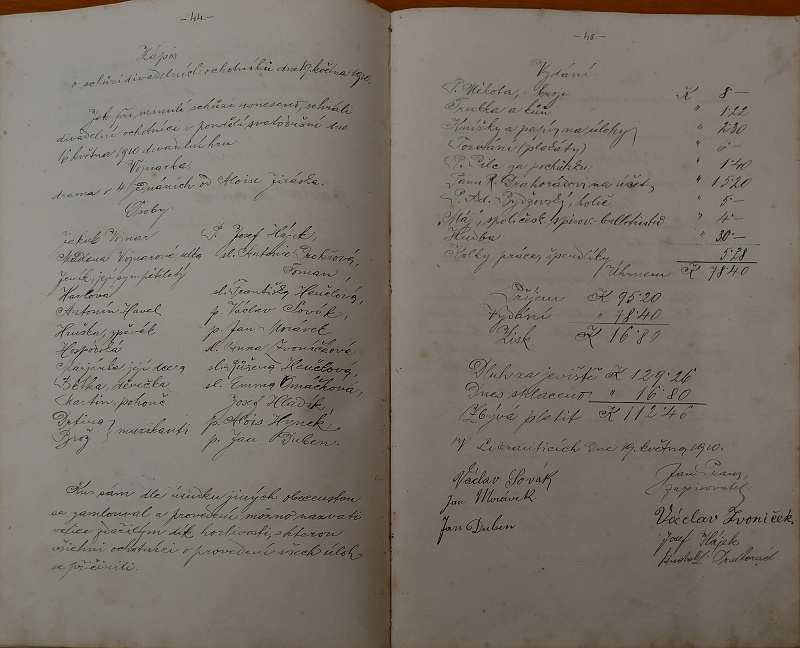 — 44. —
Zápis
o schůzi divadelních ochotníků dne 19. května 1910.
Jak při minulé schůzi usneseno, sehráli
divadelní ochotníci v pondělí svatodušní dne
16 května 1910 divadelní hru
Vojnarka,
drama v 4 jednáních od Aloise Jiráska.
Osoby:
Jakub Vojnar P. Josef Hájek,
Madlena Vojnarová sl. Antonie Prokešová,
Jeník, její syn pětiletý Toman
Havlová sl. Františka Henčlová,
Antonín Havel p. Václav Sovák,
Hruška, zpěvák p. Jan Morávek
Hospodská sl. Anna Zvoníčková
Marjánka její dcera sl. Růžena Henčlová,
Bětka, děvečka sl. Emma Omáčková,
Martin, pohonč Josef Hladík,
Drtina p. Alois Hynek,
Brož } muzikanti p. Jan Duben.
Kus sám dle úsudku jiných obecenstvu
se zamlouval a provedení možno nazvati
velice zdařilým dík horlivosti, s kterou
všichni ochotníci o provedení všech úloh
se přičinili.
— 45. —
Vydání
P. Někota, kroje K 8 —
Trubka a kůň " 1·22
Knížky a papír na úlohy " 2·30
Pozvání (plakáty) " 6 —
P. Pilc za pochůzku " 1·40
Panu R. Drahorádovi na účet " 15·20
P. Ad. Bydžovský, holič " 5 —
"Máj", spol. česk. spisov. belletristů " 4 —
Hudba " 30 —
Kolky, práce, špendlíky 5·28
Úhrnem K 78·40
Příjem K 95·20
Vydání " 78·40
Zisk K 16·80
Dluh za jeviště K 129·26
Dnes splaceno " 16·80
Zbývá platit K 112·46
V Libranticích dne 19. května 1910.
Václav Sovák
Jan Morávek
Jan Duben
Jan
zapisovatel
Václav Zvoníček.
Josef Hájek